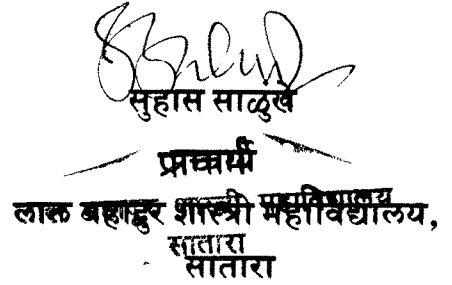 सुहास साळुंखे
प्राचार्य
लाल बहाद्दुर शास्त्री महाविद्यालय,
सातारा
सातारा